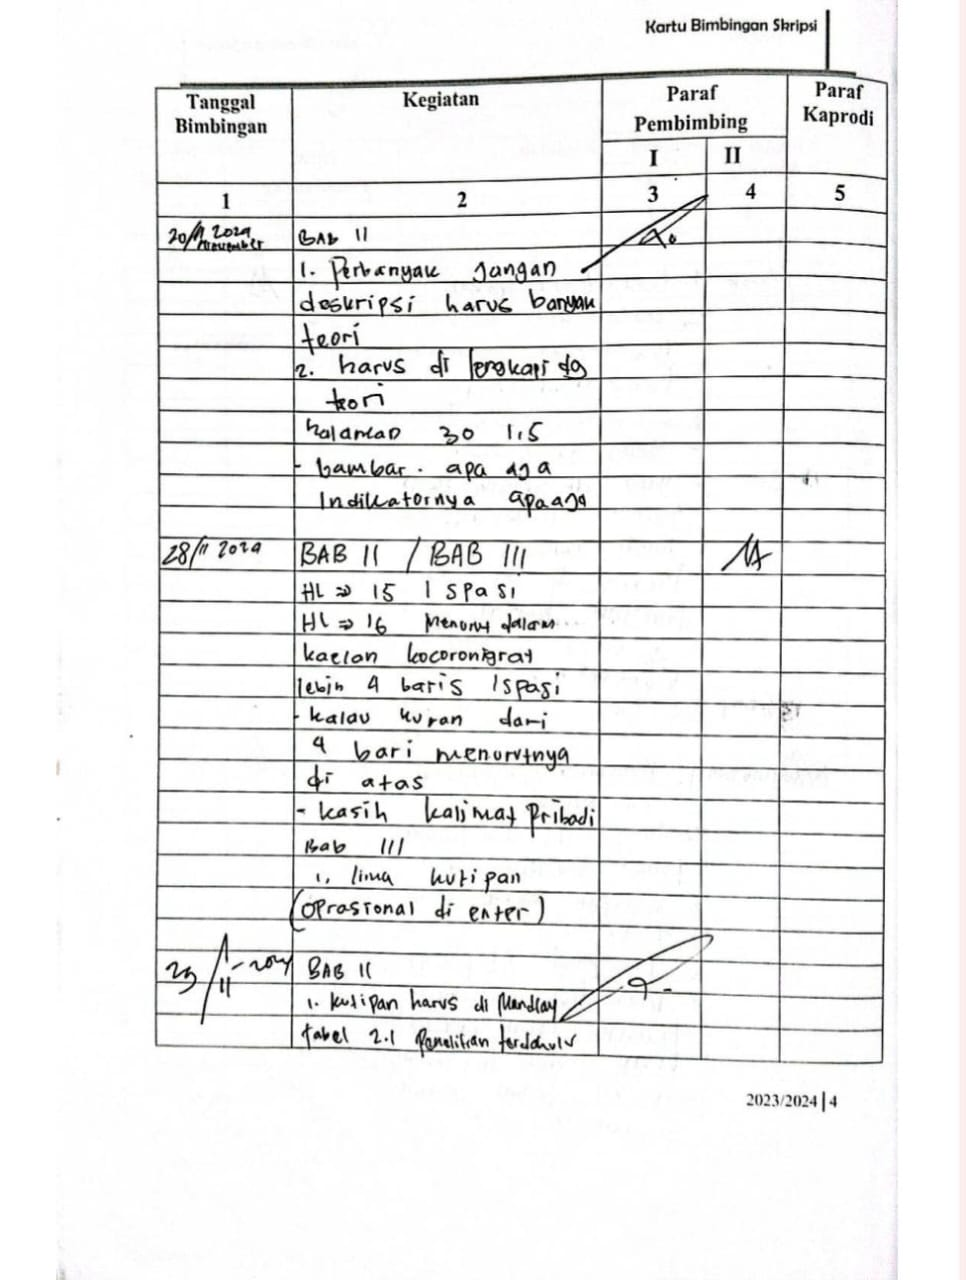 Kartu Bimbingan Skripsi
Tanggal Bimbingan
Kegiatan
Paraf Pembimbing
Paraf Kaprodi
I II
1 2 3 4 5
20/11 2024 November
BAB II
1. Perbanyak Jangan
deskripsi harus banyak
teori
2. harus di lengkapi dg
teori
halaman 30 1.5
- bambar. apa aja
Indikatornya apa aja
28/11 2024 BAB II / BAB III
HL => 15 1 spasi
HL => 16 Menurut dalam
kaelan
lebih 4 baris 1 spasi
- kalau kuran dari
4 bari menurutnya
di atas
- kasih kalimat Pribadi
Bab III
1. lima kutipan
(oprasional di enter)
29/11-2024 BAB II
1. kutipan harus di
tabel 2.1 Penelitian terdahulu
2023/2024 | 4